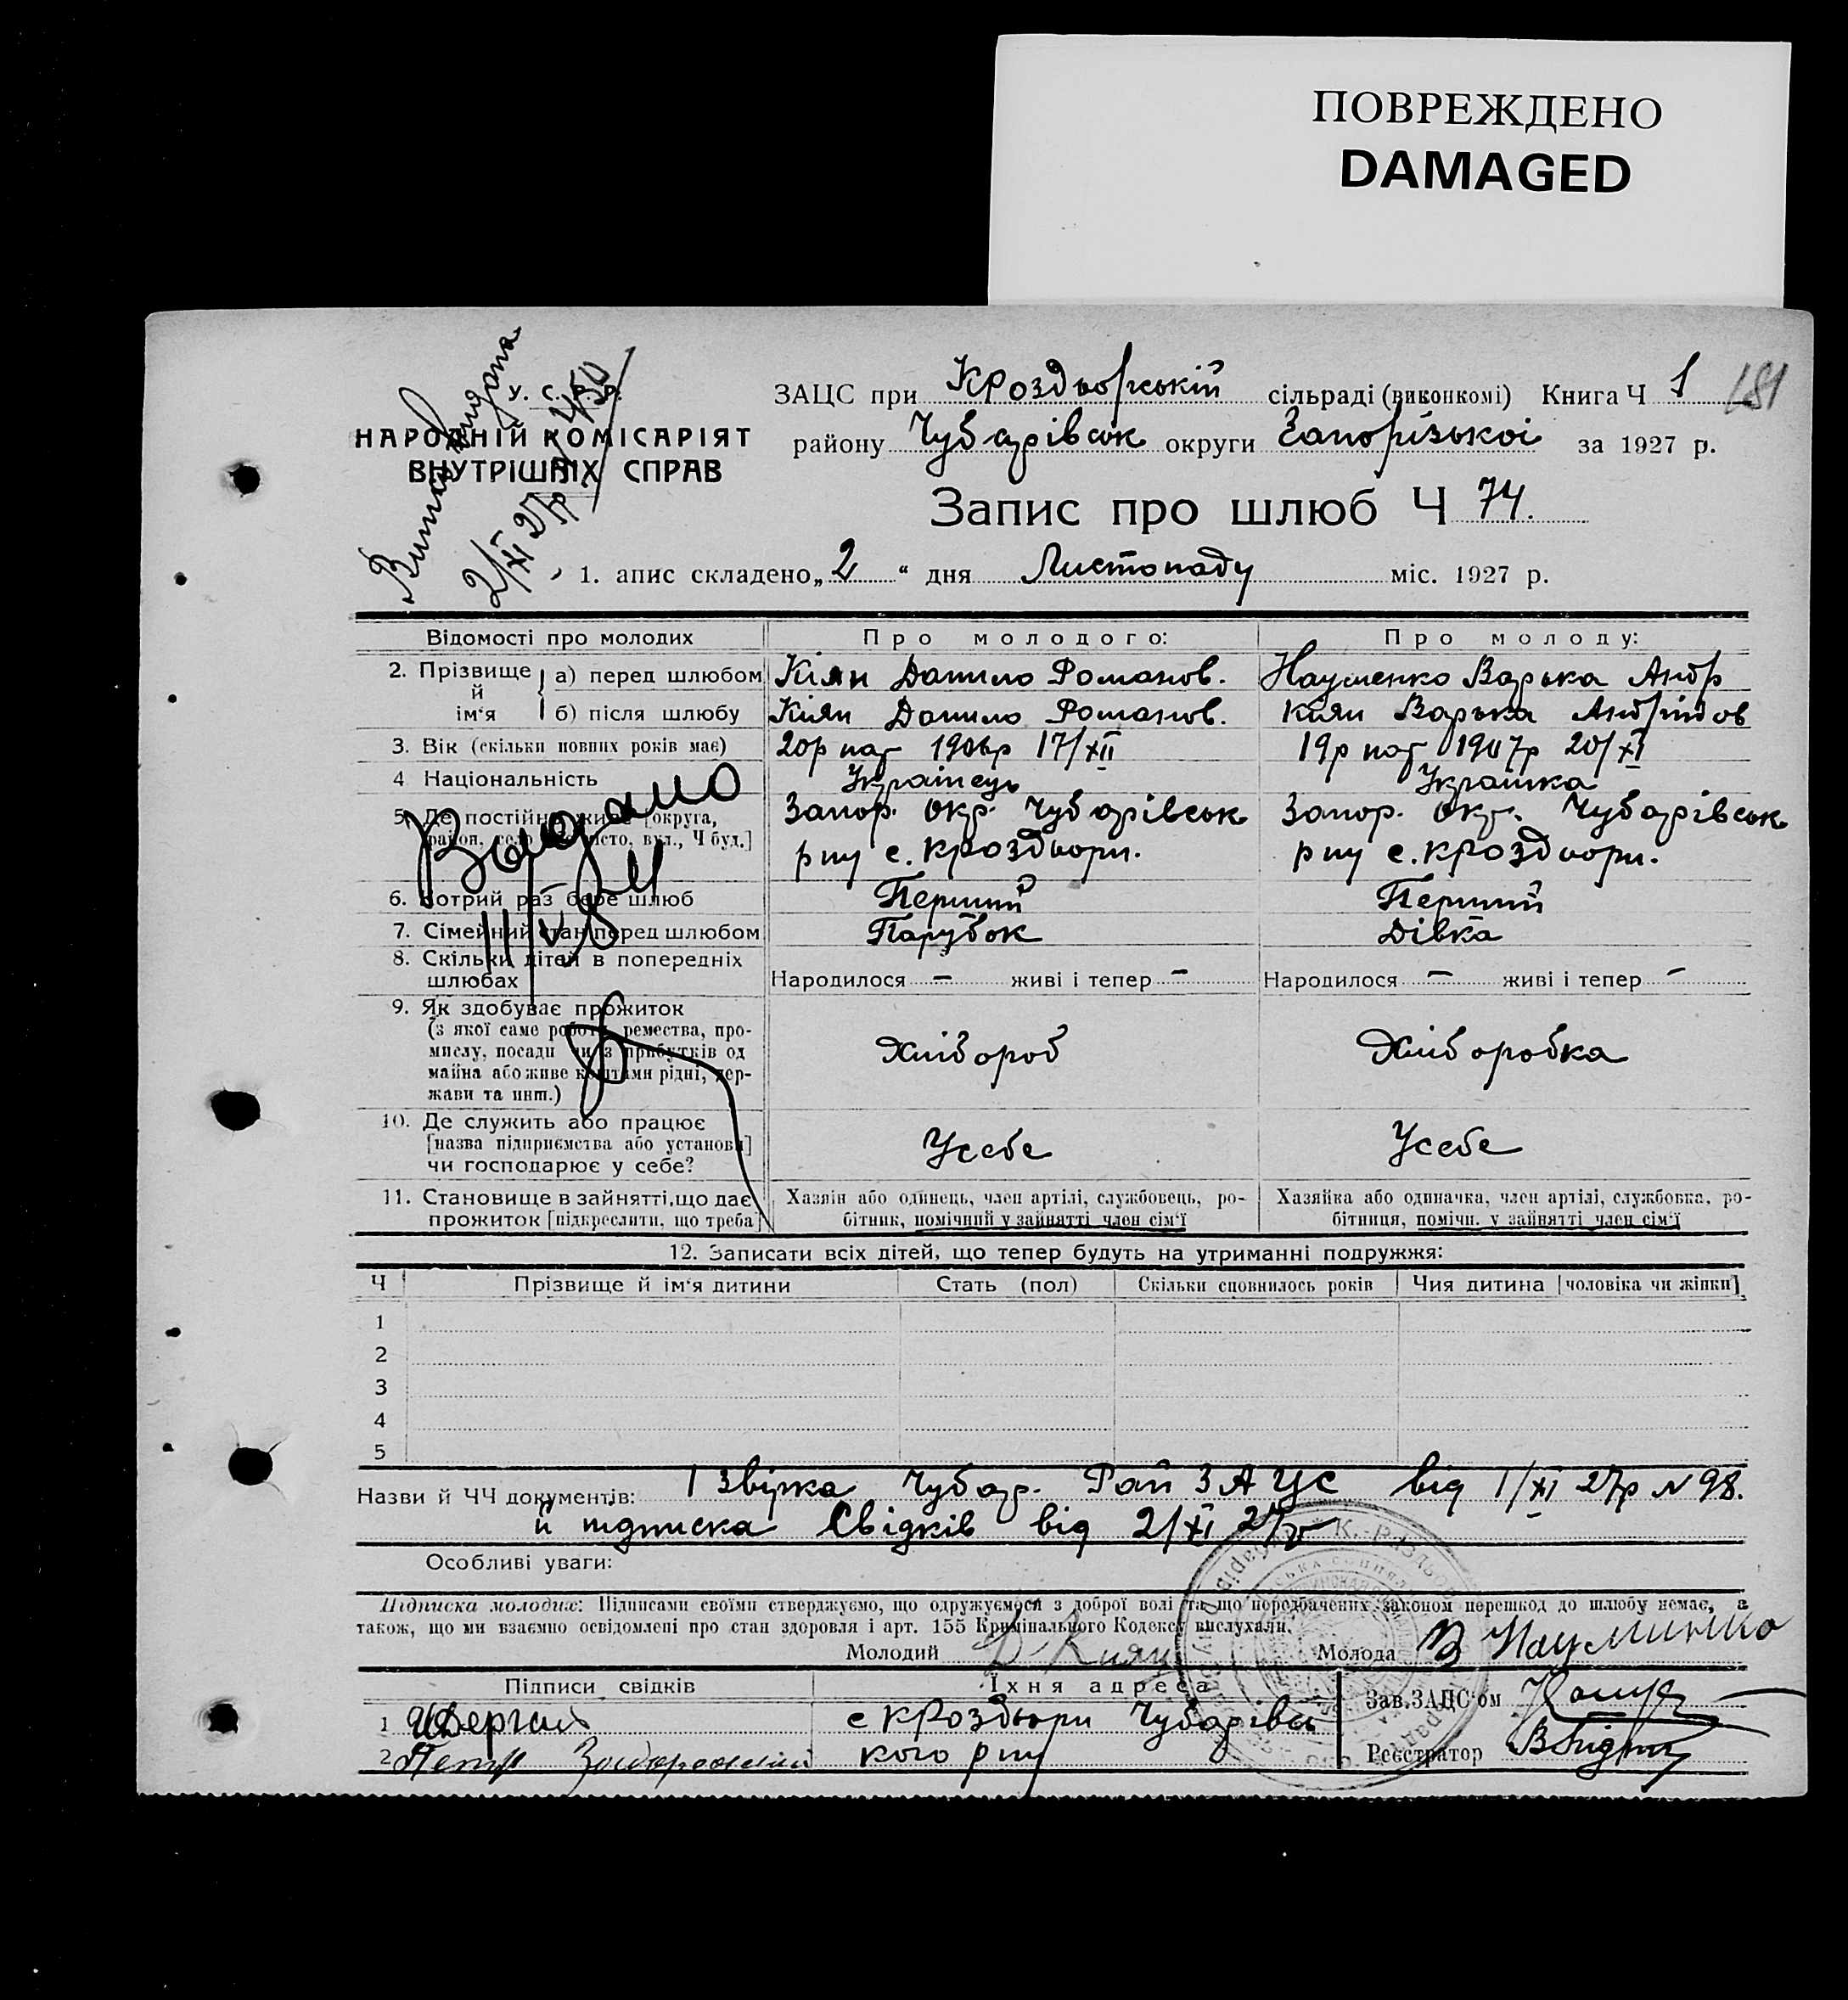 ПОВРЕЖДЕНО
DAMAGED
У. С. Р. Р.
НАРОДНІЙ КОМІСАРІЯТ
ВНУТРІШНІХ СПРАВ
2/XI 27р № 450
ЗАЦС при Кроздьорській сільраді (виконкомі) Книга Ч 1 181
району Чубарівськ округи Запорізькоі за 1927 р.
Запис про шлюб Ч 74.
1. апис складено „ 2 “ дня Листопаду міс. 1927 р.
Відомості про молодих Про молодого: Про молоду:
2. Прізвище й ім‘я а) перед шлюбом Кіян Данило Романов. Науменко Варька Андр
б) після шлюбу Киян Данило Романов. Киян Варька Андріідов
3. Вік (скільки повних років має) 20р нар 1906р 17/XII 19р нар 1907р 20/XI
4 Національність Українець Українка
5. Де постійно живе [округа, район, село або місто, вул., Ч буд.] Запор. окр. Чубарівськ Запор. Окр. Чубарівськ
рну с. Кроздьори. рну с. Кроздьори.
Видано
6. Котрий раз бере шлюб Перший Перший
7. Сімейний стан перед шлюбом Парубок Дівка
8. Скільки дітей в попередніх шлюбах Народилося — живі і тепер — Народилося — живі і тепер —
9. Як здобуває прожиток
(з якої саме роботи, ремества, про-
мислу, посади чи з прибутків од Хліб ороб Хліб оробка
майна або живе коштами рідні, дер-
жави та инш.)
10. Де служить або працює
[назва підприємства або установи] Усебе Усебе
чи господарює у себе?
11. Становище в зайнятті, що дає Хазяїн або одинець, член артілі, службовець, ро- Хазяйка або одиначка, член артілі, службовка, ро-
прожиток [підкреслити, що треба] бітник, помічний у зайнятті член сім‘ї бітниця, помічн. у зайнятті член сім‘ї
12. Записати всіх дітей, що тепер будуть на утриманні подружжя:
Ч Прізвище й ім‘я дитини Стать (пол) Скільки сповнилось років Чия дитина [чоловіка чи жінки]
1
2
3
4
5
Назви й ЧЧ документів: 1 Звірка Чубар. Рай ЗАЦС від 1/XI 27р № 98.
й підписка Свідків від 2/XI 27р
Особливі уваги:
Підписка молодих: Підписами своїми стверджуємо, що одружуємося з доброї волі та що передбачених законом перешкод до шлюбу немає, а
також, що ми взаємно освідомлені про стан здоровля і арт. 155 Кримінального Кодексу вислухали.
Молодий Д Киян Молода В Науминко
Підписи свідків Їхня адреса Зав. ЗАЦС‘ом
1 с Кроздьори Чубарівсь
2 Петр кого рну Реєстратор